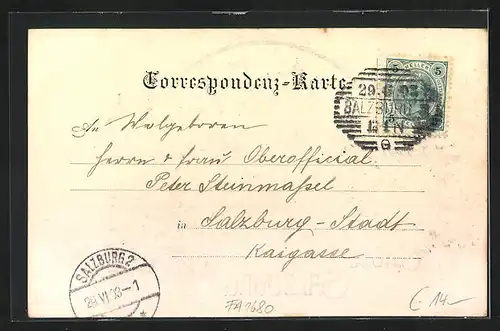 Correspondenz-Karte
5 HELLER 5
29.6.03
SALZBURG
An Wolgeboren
Herrn & Frau Oberofficial
Peter Steinmassel
in Salzburg-Stadt
Kaigasse
SALZBURG 2
29 VI 03-1
*
FA1680
€ 14.-